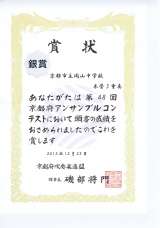 賞状
銀賞
京都市立岡山中学校
木管三重奏
あなたがたは第48回
京都府アンサンブルコン
テストにおいて頭書の成績を
おさめられましたのでこれを
賞します
2012年12月23日
京都府吹奏楽連盟
理事長 磯部将門